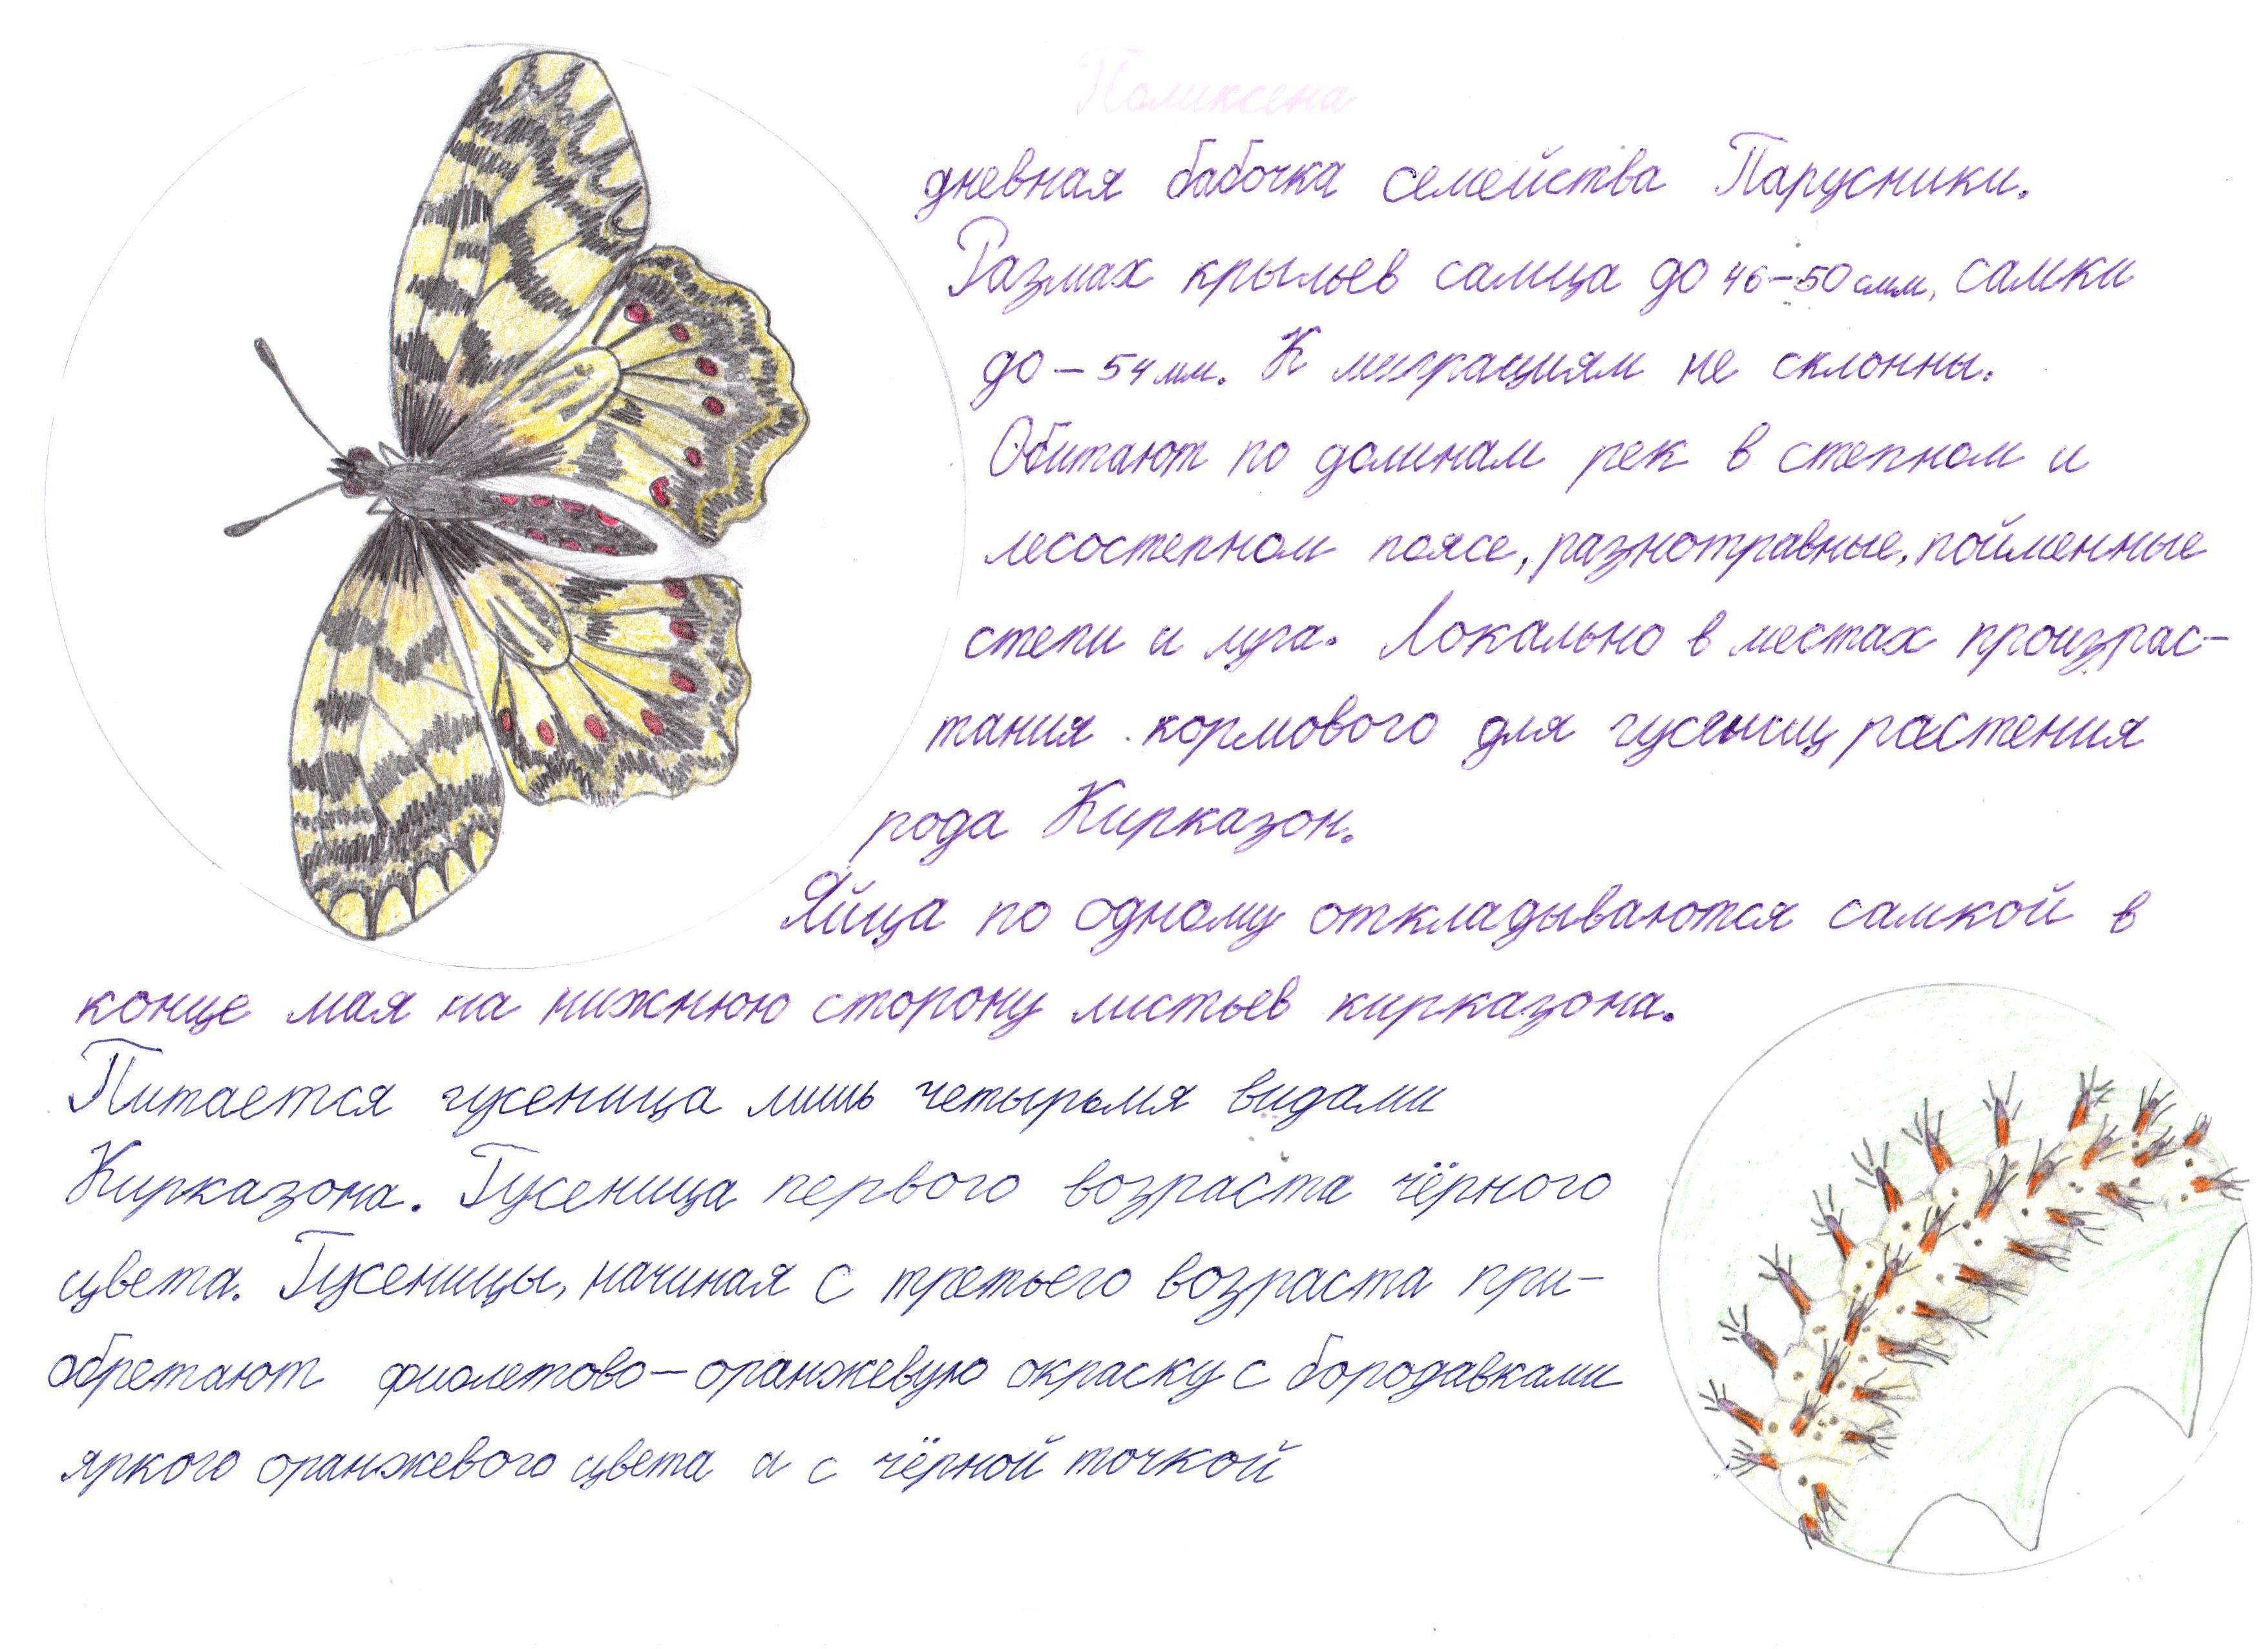 Поликсена
дневная бабочка семейства Парусники.
Размах крыльев самца до 46-50 мм, самки
до - 54 мм. К миграциям не склонны.
Обитают по долинам рек в степном и
лесостепном поясе, разнотравные, пойменные
степи и луга. Локально в местах произрас-
тания кормового для гусениц растения
рода Кирказон.
Яйца по одному откладываются самкой в
конце мая на нижнюю сторону листьев кирказона.
Питается гусеница лишь четырьмя видами
Кирказона. Гусеница первого возраста чёрного
цвета. Гусеницы, начиная с третьего возраста при-
обретают фиолетово-оранжевую окраску с бородавками
яркого оранжевого цвета и с чёрной точкой